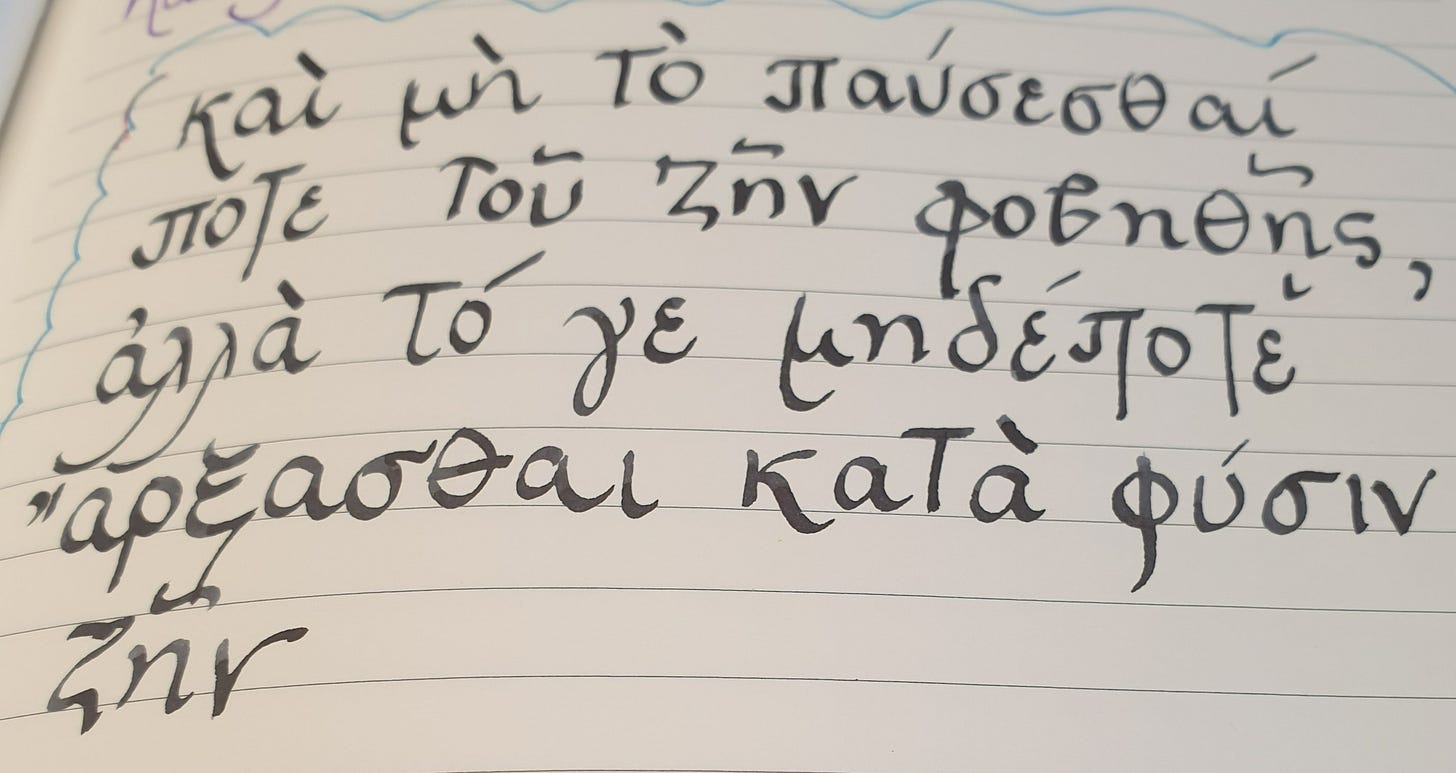 καὶ μὴ τὸ παύσεσθαί
ποτε τοῦ ζῆν φοβηθῇς,
ἀλλὰ τό γε μηδέποτε
ἄρξασθαι κατὰ φύσιν
ζῆν